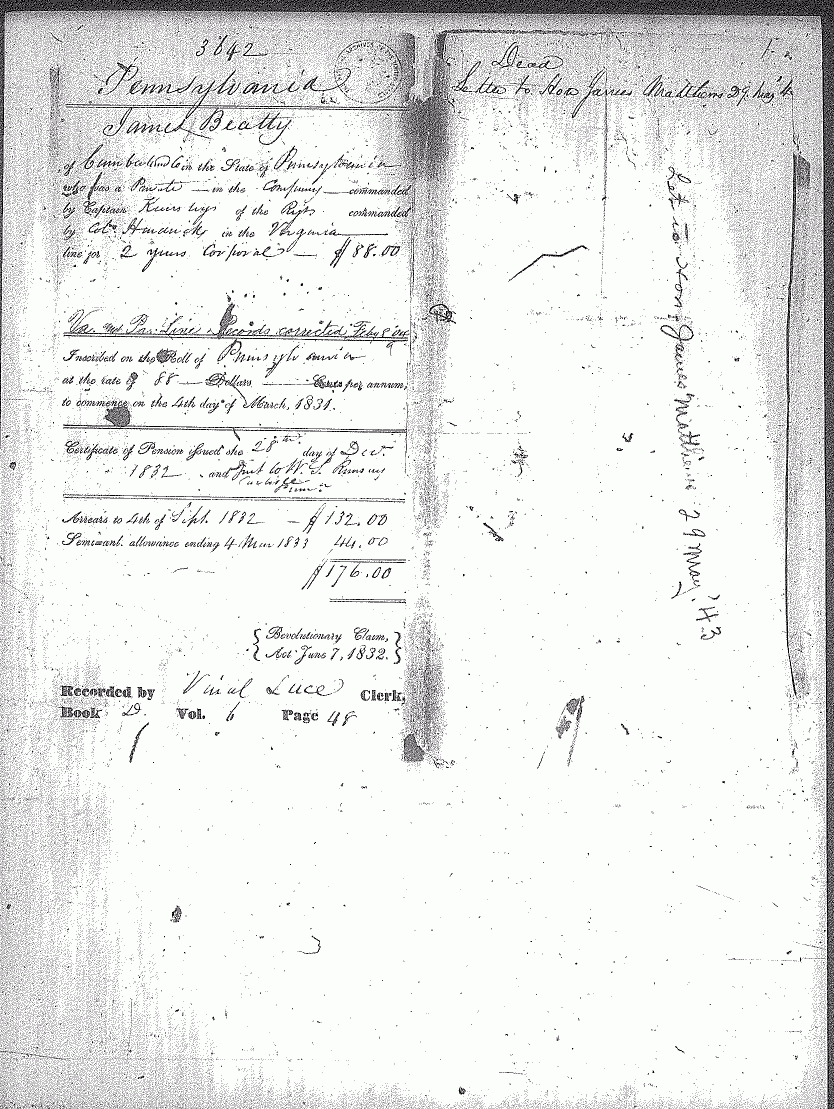 3642
Pennsylvania
James Beatty
of Cumberland in the State of Pennsylvania
who was a Private in the Company commanded
by Captain of the Regt commanded
by Col. in the Virginia
line for 2 years Corporal $88.00
Va. not Pa. Line Records corrected Feby 8
Inscribed on the Roll of Pennsylvania
at the rate of 88 Dollars Cents per annum,
to commence on the 4th day of March, 1831.
Certificate of Pension issued the 28th day of Dec.
1832 and sent to W. S. Ramsey
Carlisle
Penna
Arrears to 4th of Sept. 1832 $132.00
Semi-anl. allowance ending 4 Mar 1833 44.00
$176.00
Revolutionary Claim,
Act June 7, 1832.
Recorded by Vinal Luce Clerk,
Book D. Vol. 6 Page 48
Dead
Letter to Hon James Matthews 29 May
Let to Hon. James Matthews 29 May, '43